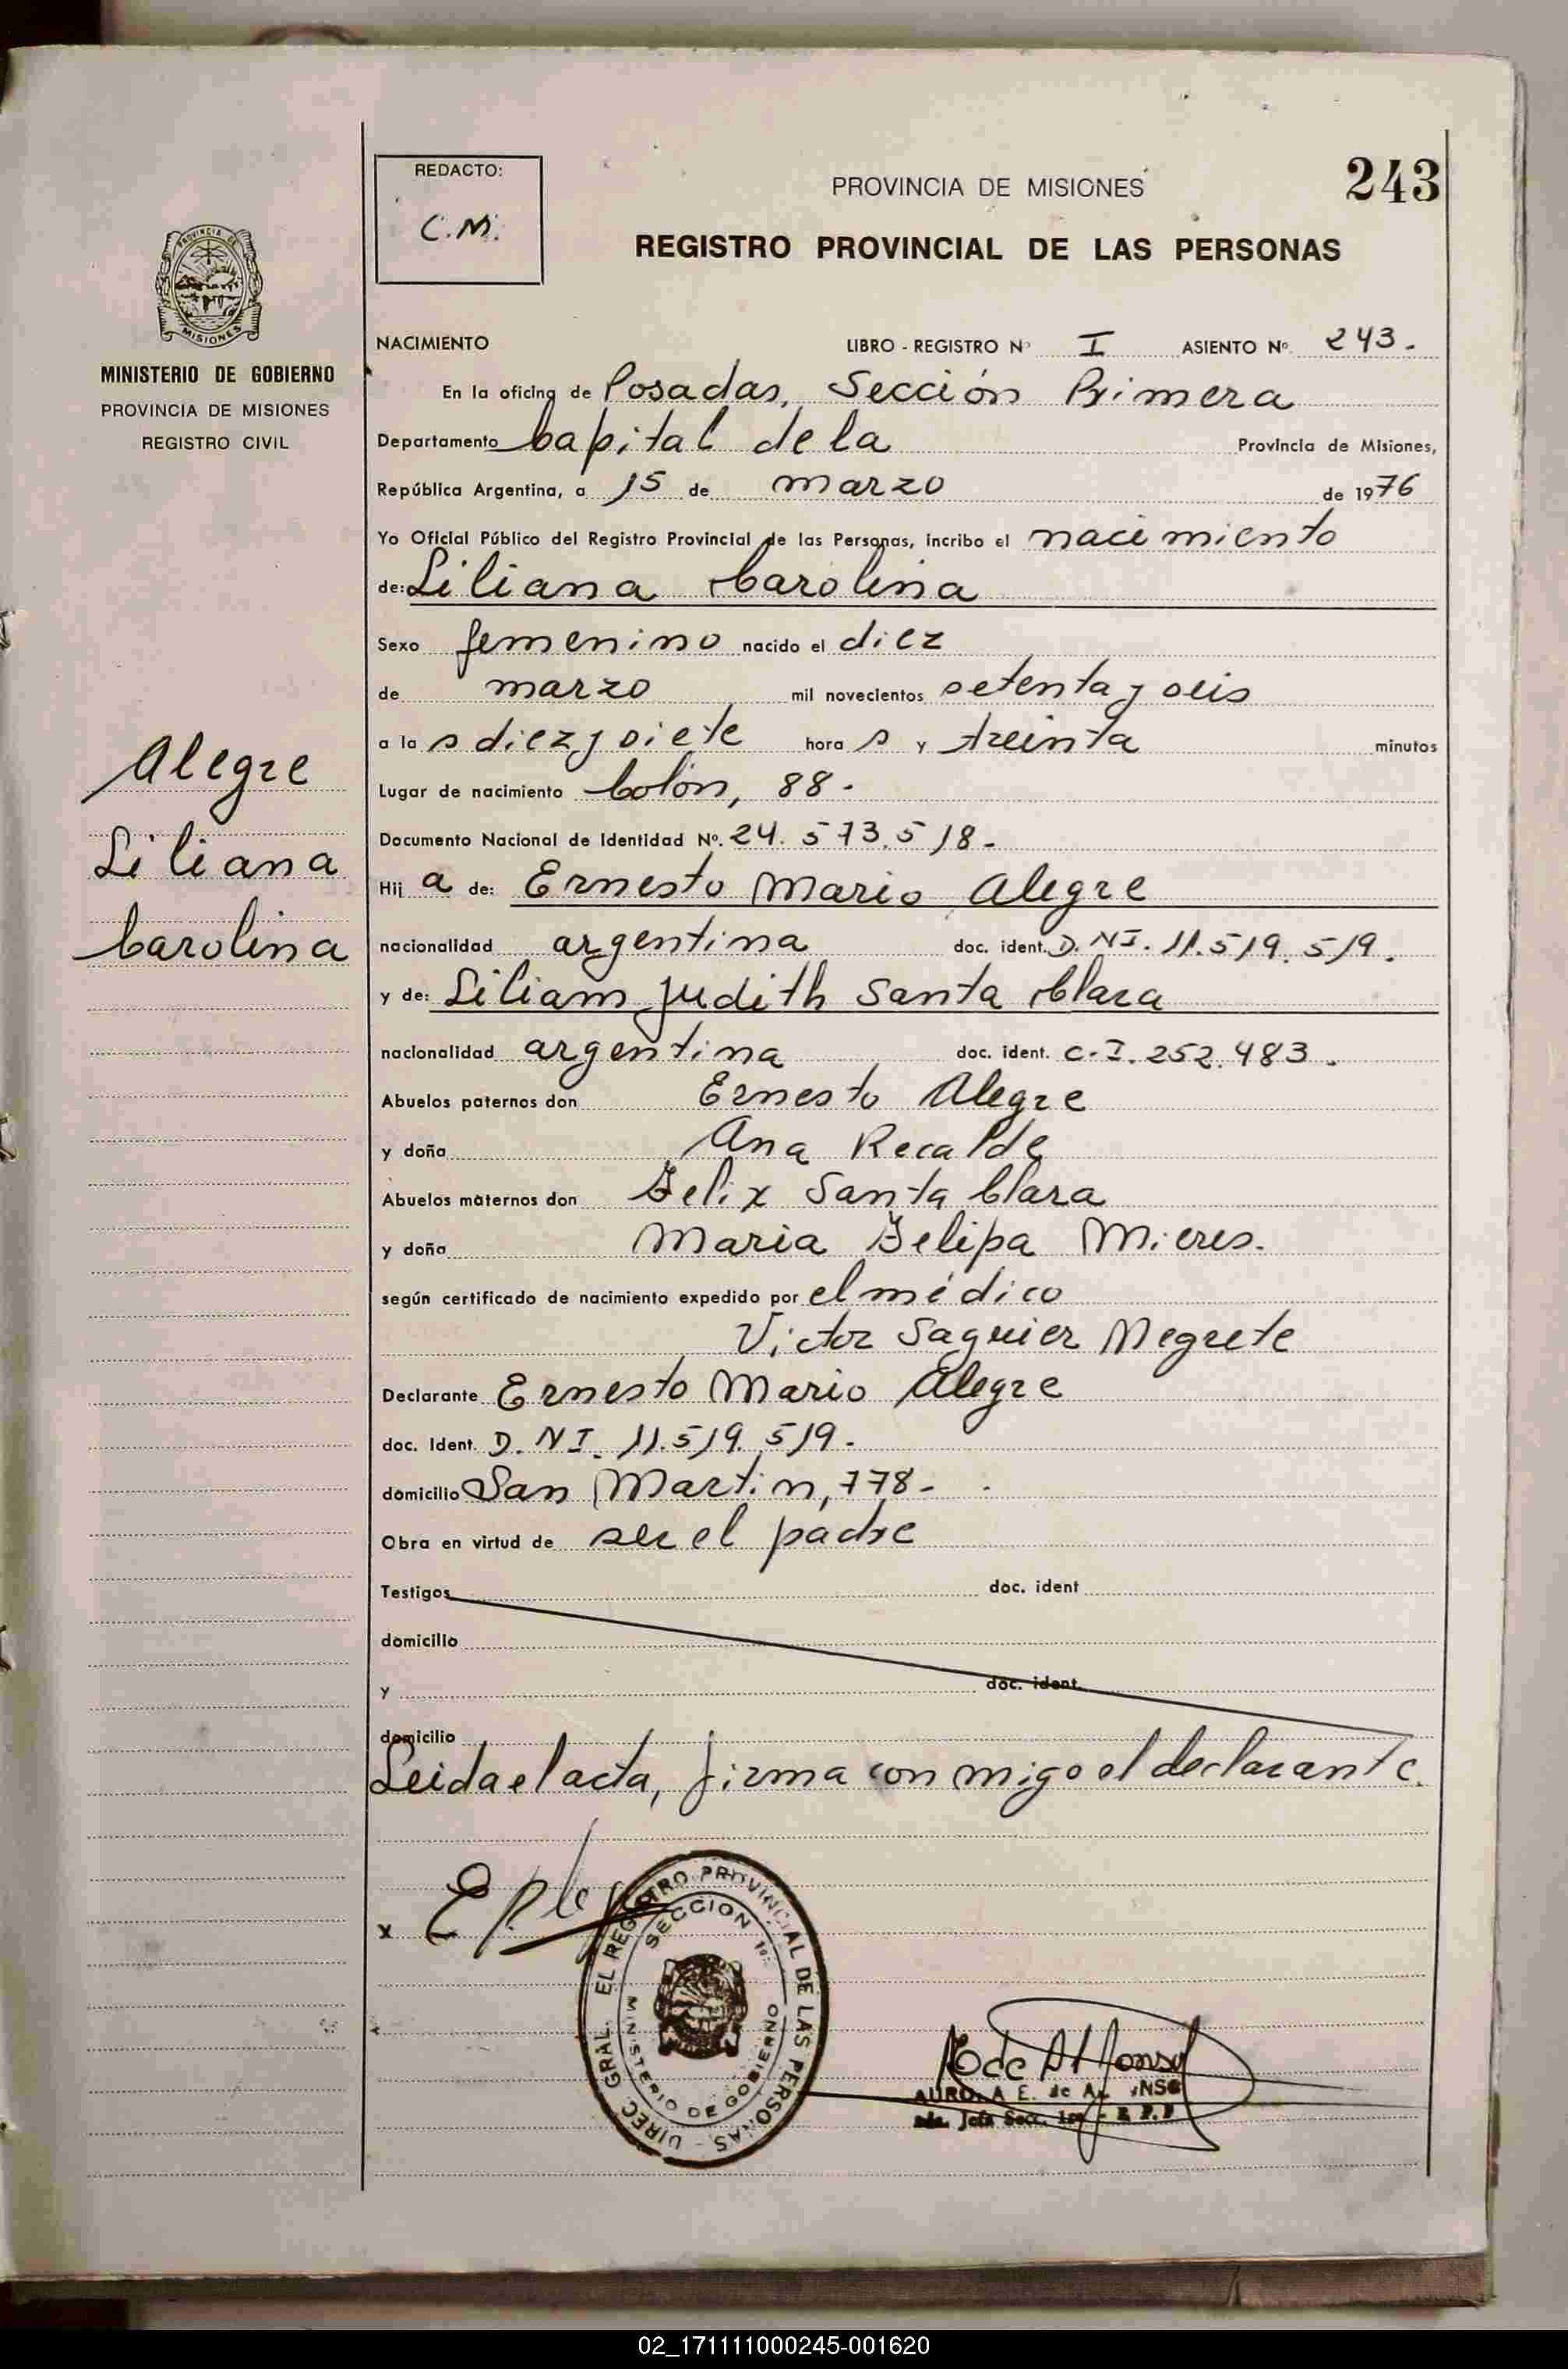 REDACTO:
C.M.
PROVINCIA DE MISIONES
243
REGISTRO PROVINCIAL DE LAS PERSONAS
PROVINCIA DE
MISIONES
MINISTERIO DE GOBIERNO
PROVINCIA DE MISIONES
REGISTRO CIVIL
Alegre
Liliana
Carolina
NACIMIENTO LIBRO - REGISTRO Nº I ASIENTO Nº. 243.
En la oficina de Posadas, Sección Primera
Departamento Capital de la Provincia de Misiones,
República Argentina, a 15 de marzo de 1976
Yo Oficial Público del Registro Provincial de las Personas, incribo el nacimiento
de: Liliana Carolina
Sexo femenino nacido el diez
de marzo mil novecientos setenta y seis
a la s diez y siete hora s y treinta minutos
Lugar de nacimiento Colón, 88.
Documento Nacional de Identidad Nº. 24.573.518-
Hij a de: Ernesto Mario Alegre
nacionalidad argentina doc. ident. D.NI. 11.519.519.
y de: Liliam Judith Santa Clara
nacionalidad argentina doc. ident. C.I. 252.483.
Abuelos paternos don Ernesto Alegre
y doña Ana Recalde
Abuelos maternos don Felix Santa Clara
y doña Maria Felipa Mieres.
según certificado de nacimiento expedido por el médico
Victor Saguier Negrete
Declarante Ernesto Mario Alegre
doc. Ident. D.NI. 11.519.519.
domicilio San Martin, 778-
Obra en virtud de ser el padre
Testigos doc. ident
domicilio
y doc. ident.
domicilio
Leida el acta, firma conmigo el declarante.
x
DIREC. GRAL. EL REGISTRO PROVINCIAL DE LAS PERSONAS -
SECCION 1ª:
MINISTERIO DE GOBIERNO
E. de
Jefa Secc. 1ra - R.P.P
02_171111000245-001620